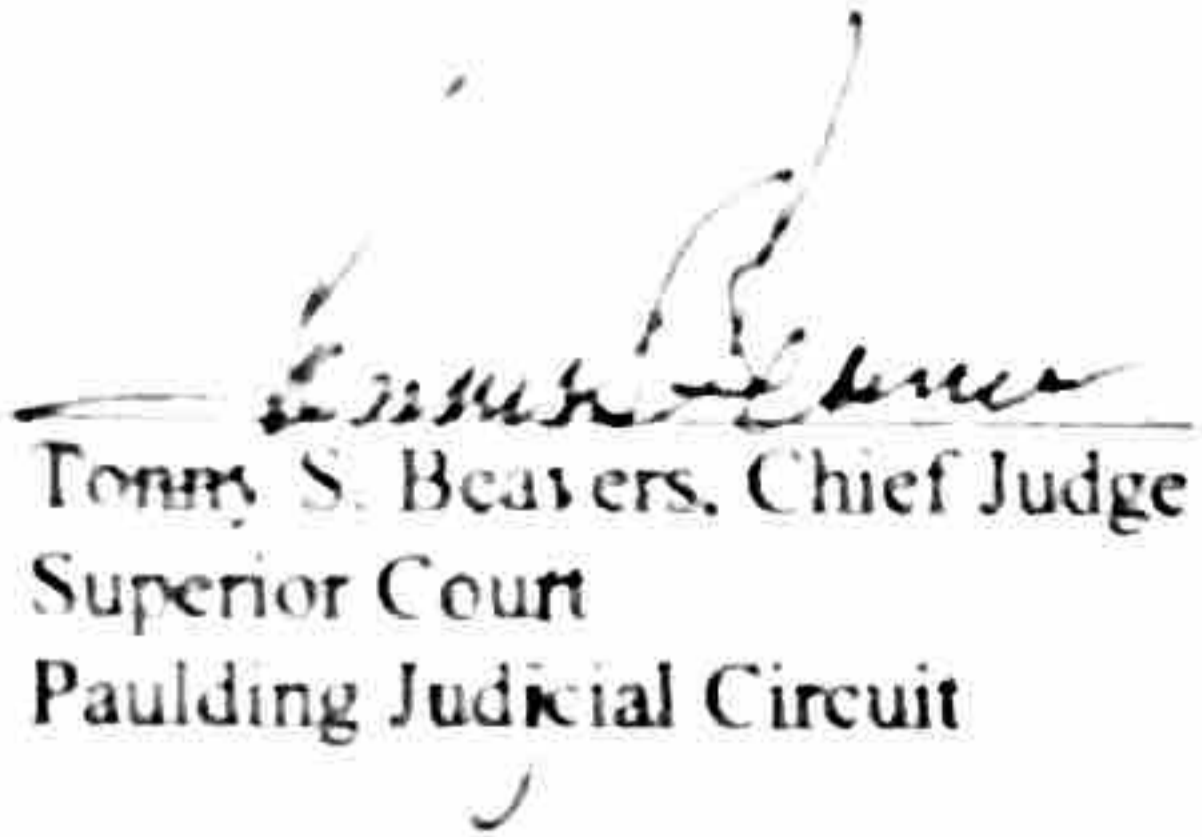 Tonny S. Beavers, Chief Judge
Superior Court
Paulding Judicial Circuit